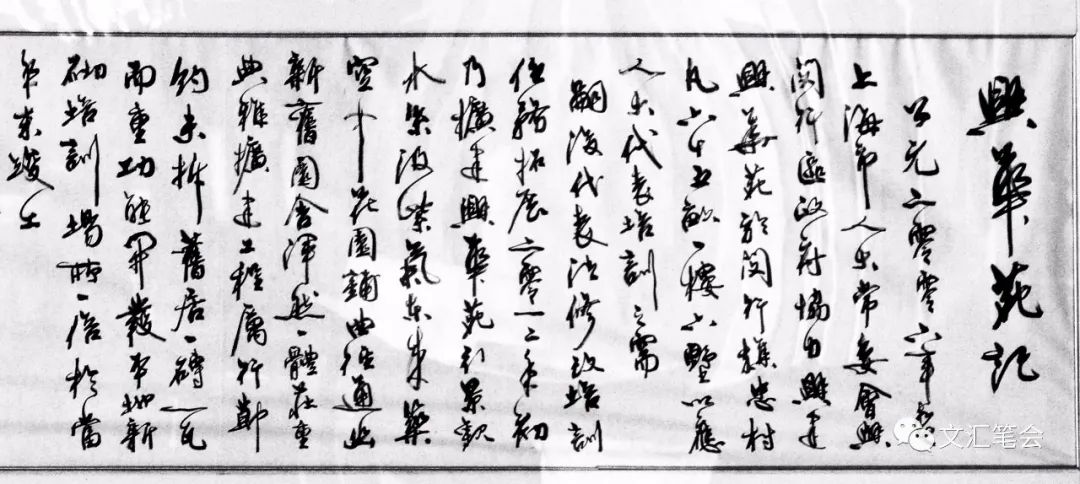 興華苑記
公元二零零六年春
上海市人大常委會與
閔行區政府協力興建
興華苑於閔行旗忠村
凡六十五畝一樓六墅以應
人大代表培訓之需
嗣後代表法修改培訓
任務拓展二零一二年初
乃擴建興華苑引景觀
水波紫氣東來築
空中花園鋪曲徑通幽
新舊園舍渾然一體莊重
典雅擴建工程厲行節
約未拆舊居一磚一瓦
而重功能開發地新
砌培訓場所一於當
年末竣工
文汇笔会